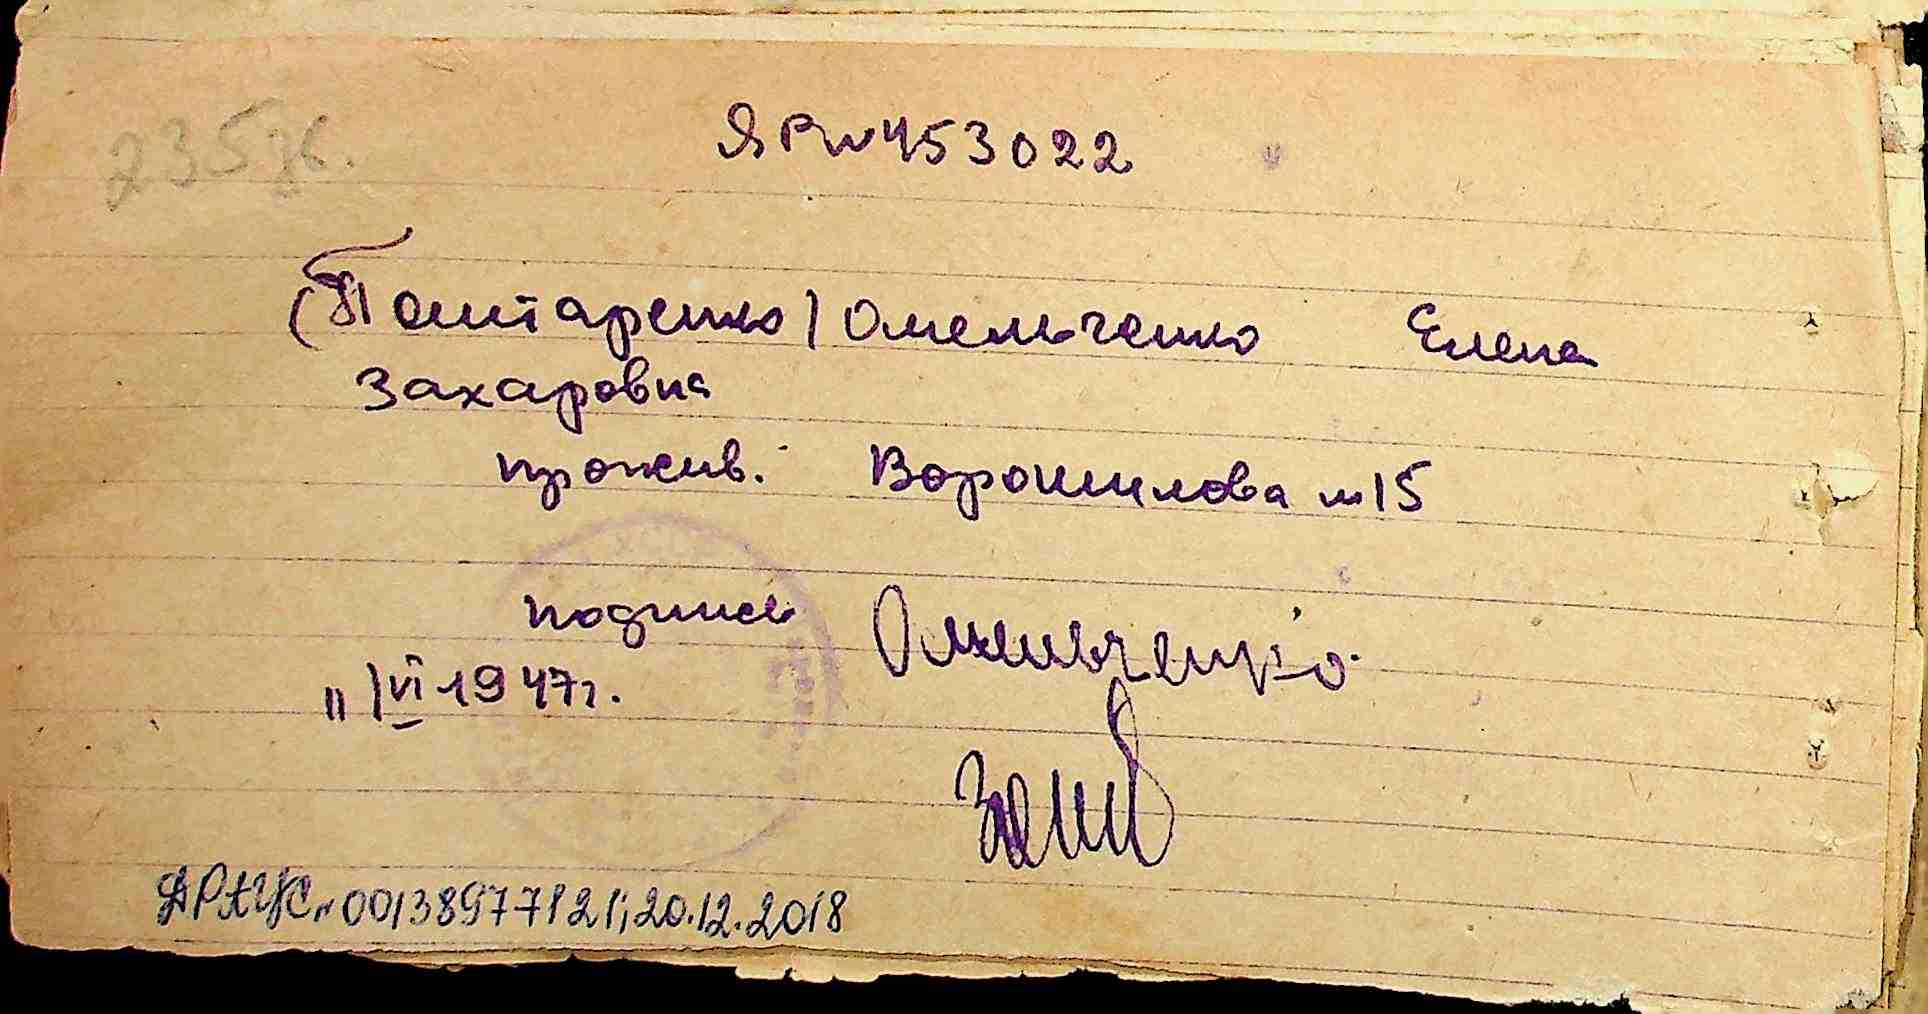 235 ж.
ЯР№453022
(Понтаренко) Омельченко Елена
Захаровна
прожив. Ворошилова №15
подпись Омельченко.
"1 VI 1947г.
ДРАЦС №00138977121; 20.12.2018